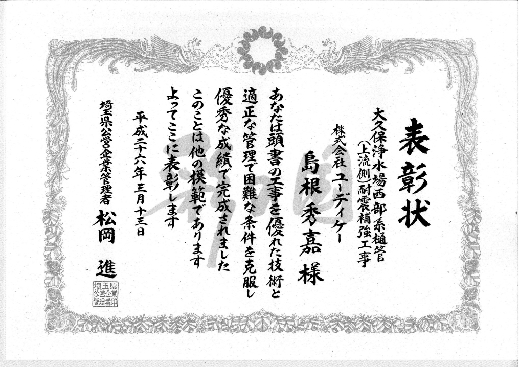 表彰状
大久保浄水場西部系樋管
(上流側)耐震補強工事
株式会社ユーディケー
島根秀嘉様
あなたは頭書の工事を優れた技術と
適正な管理で困難な条件を克服し
優秀な成績で完成されました
このことは他の模範であります
よってここに表彰します
平成二十六年三月十三日
埼玉県公営企業管理者 松岡進